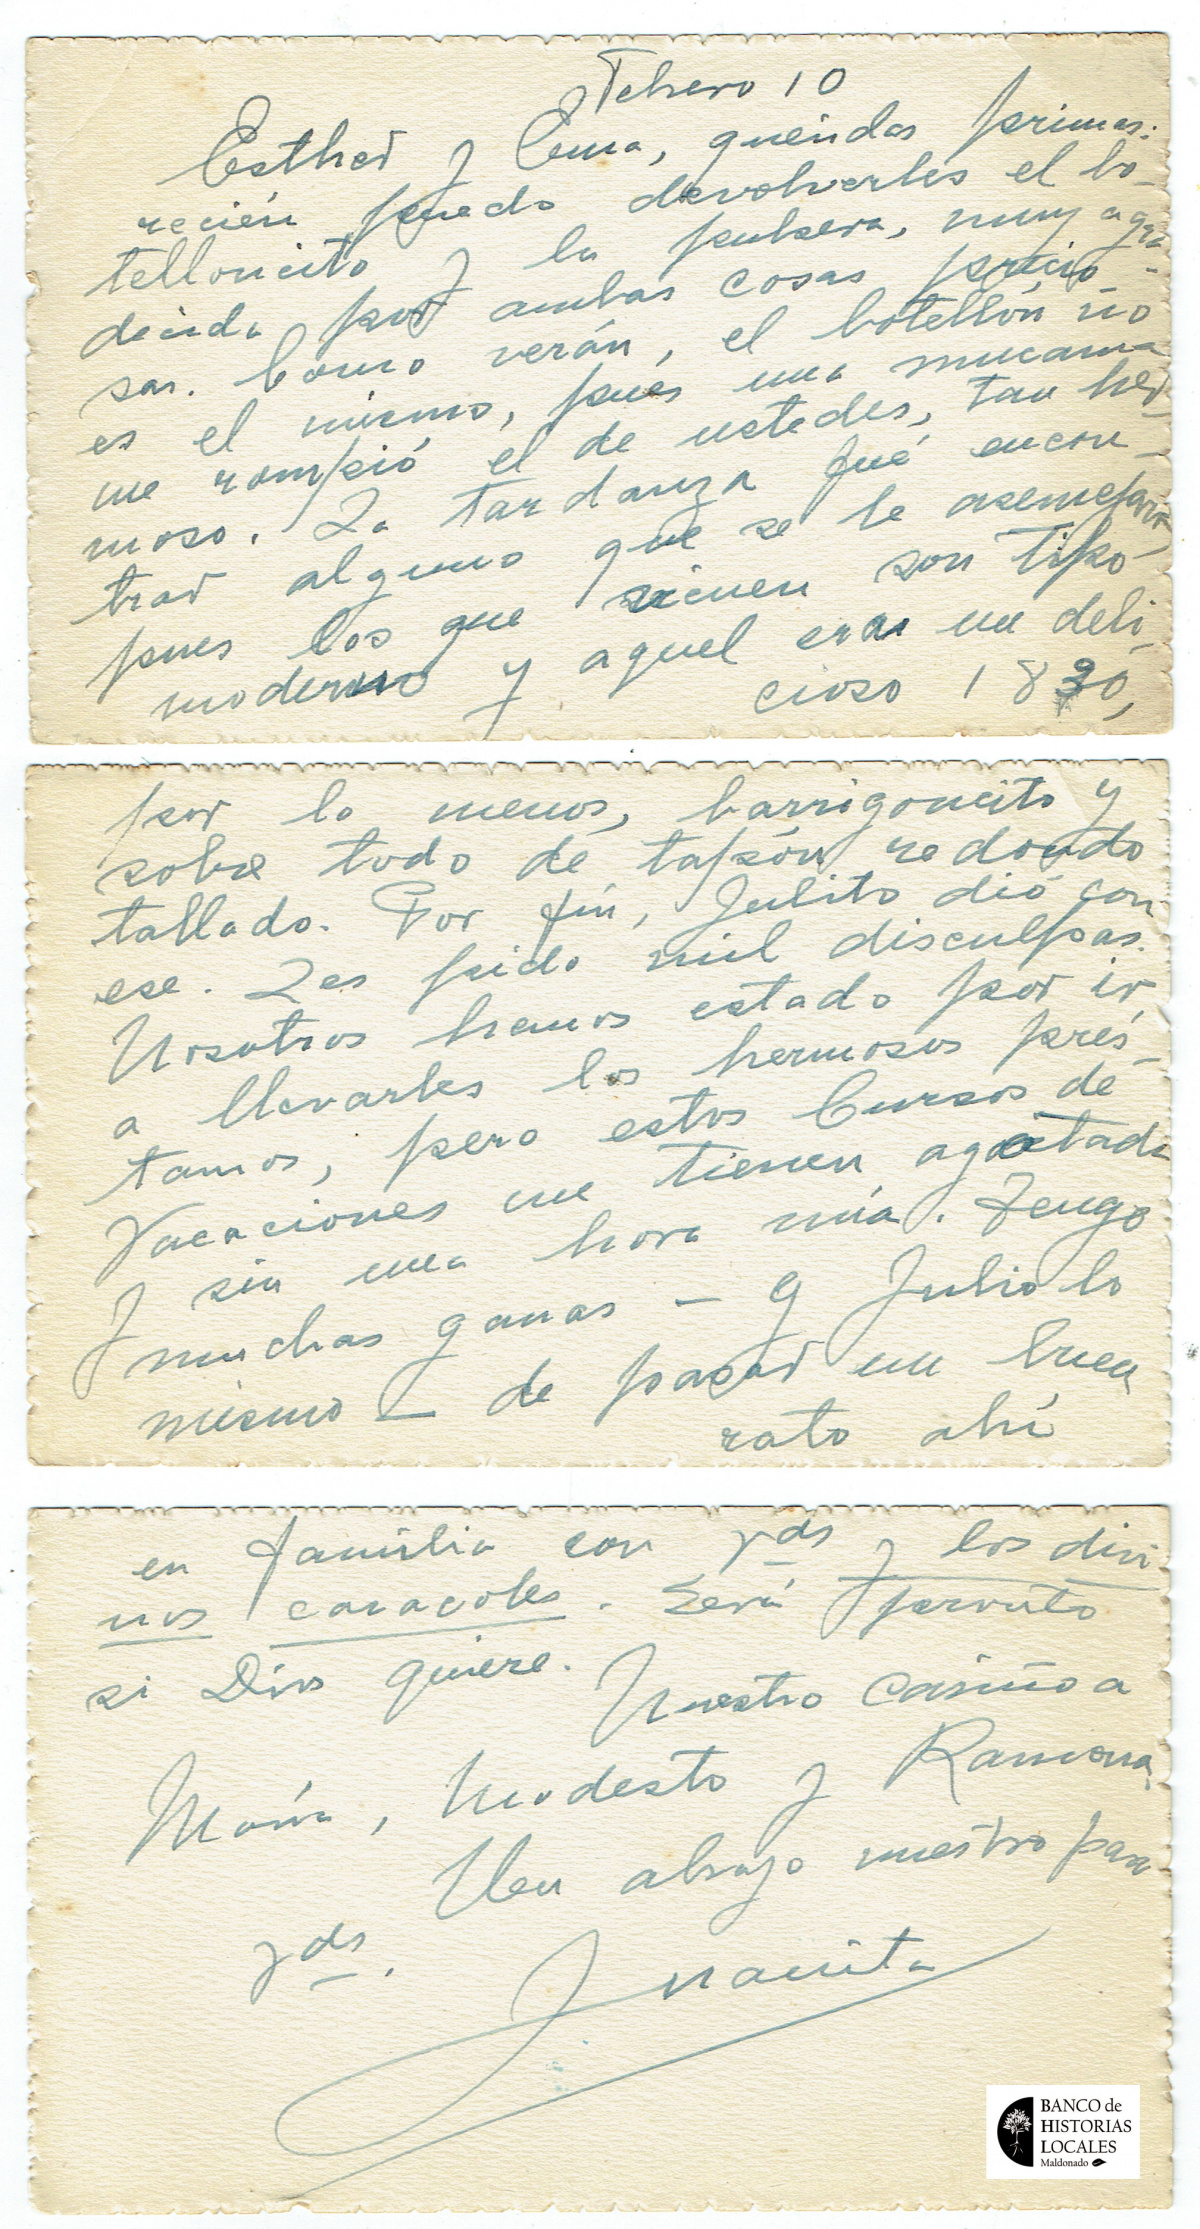 Febrero 10
Esther y Ema, queridas primas:
recién puedo devolverles el bo-
telloncito y la pulsera, muy agra
decida por ambas cosas precio-
sas. Como verán, el botellón no
es el mismo, pués una mucama
me rompió el de ustedes, tan her-
moso. La tardanza fué encon-
trar alguno que se le asemejara,
pues los que vienen son tipo
moderno y aquel era un deli-
cioso 1830,
por lo menos, barrigoncito y
sobre todo de tapón redondo
tallado. Por fín, Julito dió con
ese. Les pido mil disculpas.
Nosotros hemos estado por ir
a llevarles los hermosos prés-
tamos, pero estos Cursos de
Vacaciones me tienen agotada
y sin una hora mía. Tengo
muchas ganas — y Julio lo
mismo — de pasar un buen
rato ahí
en família con Vds y los divi
nos caracoles. Será pronto
si Dios quiere.
Nuestro cariño a
María, Modesto y Ramona.
Un abrazo nuestro para
Vds.
Juanita
BANCO de
HISTORIAS
LOCALES
Maldonado